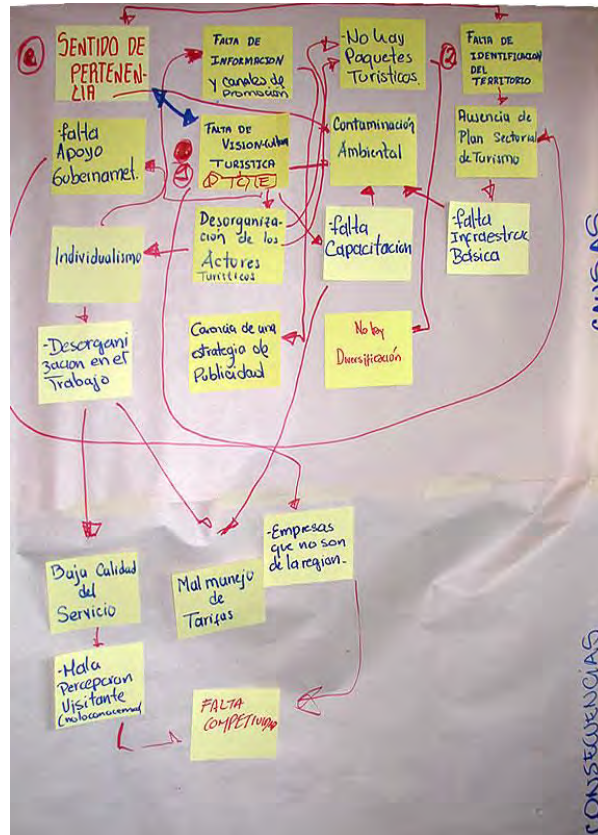 SENTIDO DE
PERTENEN-
CIA
FALTA DE
INFORMACION
y canales de
Promoción
-No hay
Paquetes
Turisticos.
FALTA DE
IDENTIFICACION
DEL
TERRITORIO
-falta
Apoyo
Gubernamet.
FALTA DE
VISION-CULTURA
TURISTICA
Contaminación
Ambiental
Ausencia de
Plan Sectorial
de Turismo
Individualismo
Desorganiza-
ción de los
Actores
Turisticos
-falta
Capacitacion
-falta
Infraestruc
Básica
-Desorgani
zacion en el
Trabajo
Carencia de una
estrategia de
Publicidad
No hay
Diversificación
CAUSAS
Baja Calidad
del
Servicio
Mal munejo
de
Tarifas
-Empresas
que no son
de la region-
-Mala
Percepcion
Visitante
FALTA
CONSECUENCIAS